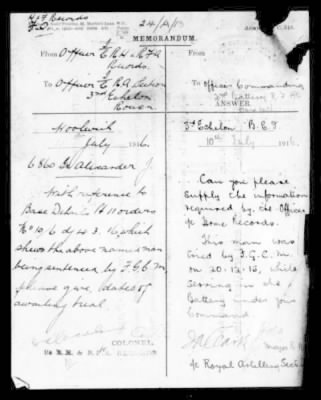 24/4/13
MEMORANDUM.
From Officer i/c R.H. & R.F.A.
Records.
To Officer i/c R.A. Section
3rd Echelon
Rouen
Woolwich
July 1916.
6860 Gr Alexander J.
With reference to
Base Details
orders
No 10
4 3. 16 which
shews the above named man
being sentenced by F.G.C.M.
please give dates of
awaiting trial.
COLONEL,
To Officer Commanding
Battery R.F.A.
ANSWER.
3rd Echelon B.E.F.
10th July 1916.
Can you please
supply the information
required by the Officer
i/c Home Records.
This man was
tried by F.G.C.M.
on 20.12.15, while
serving in the
Battery under your
Command.
Major
i/c Royal Artillery Section